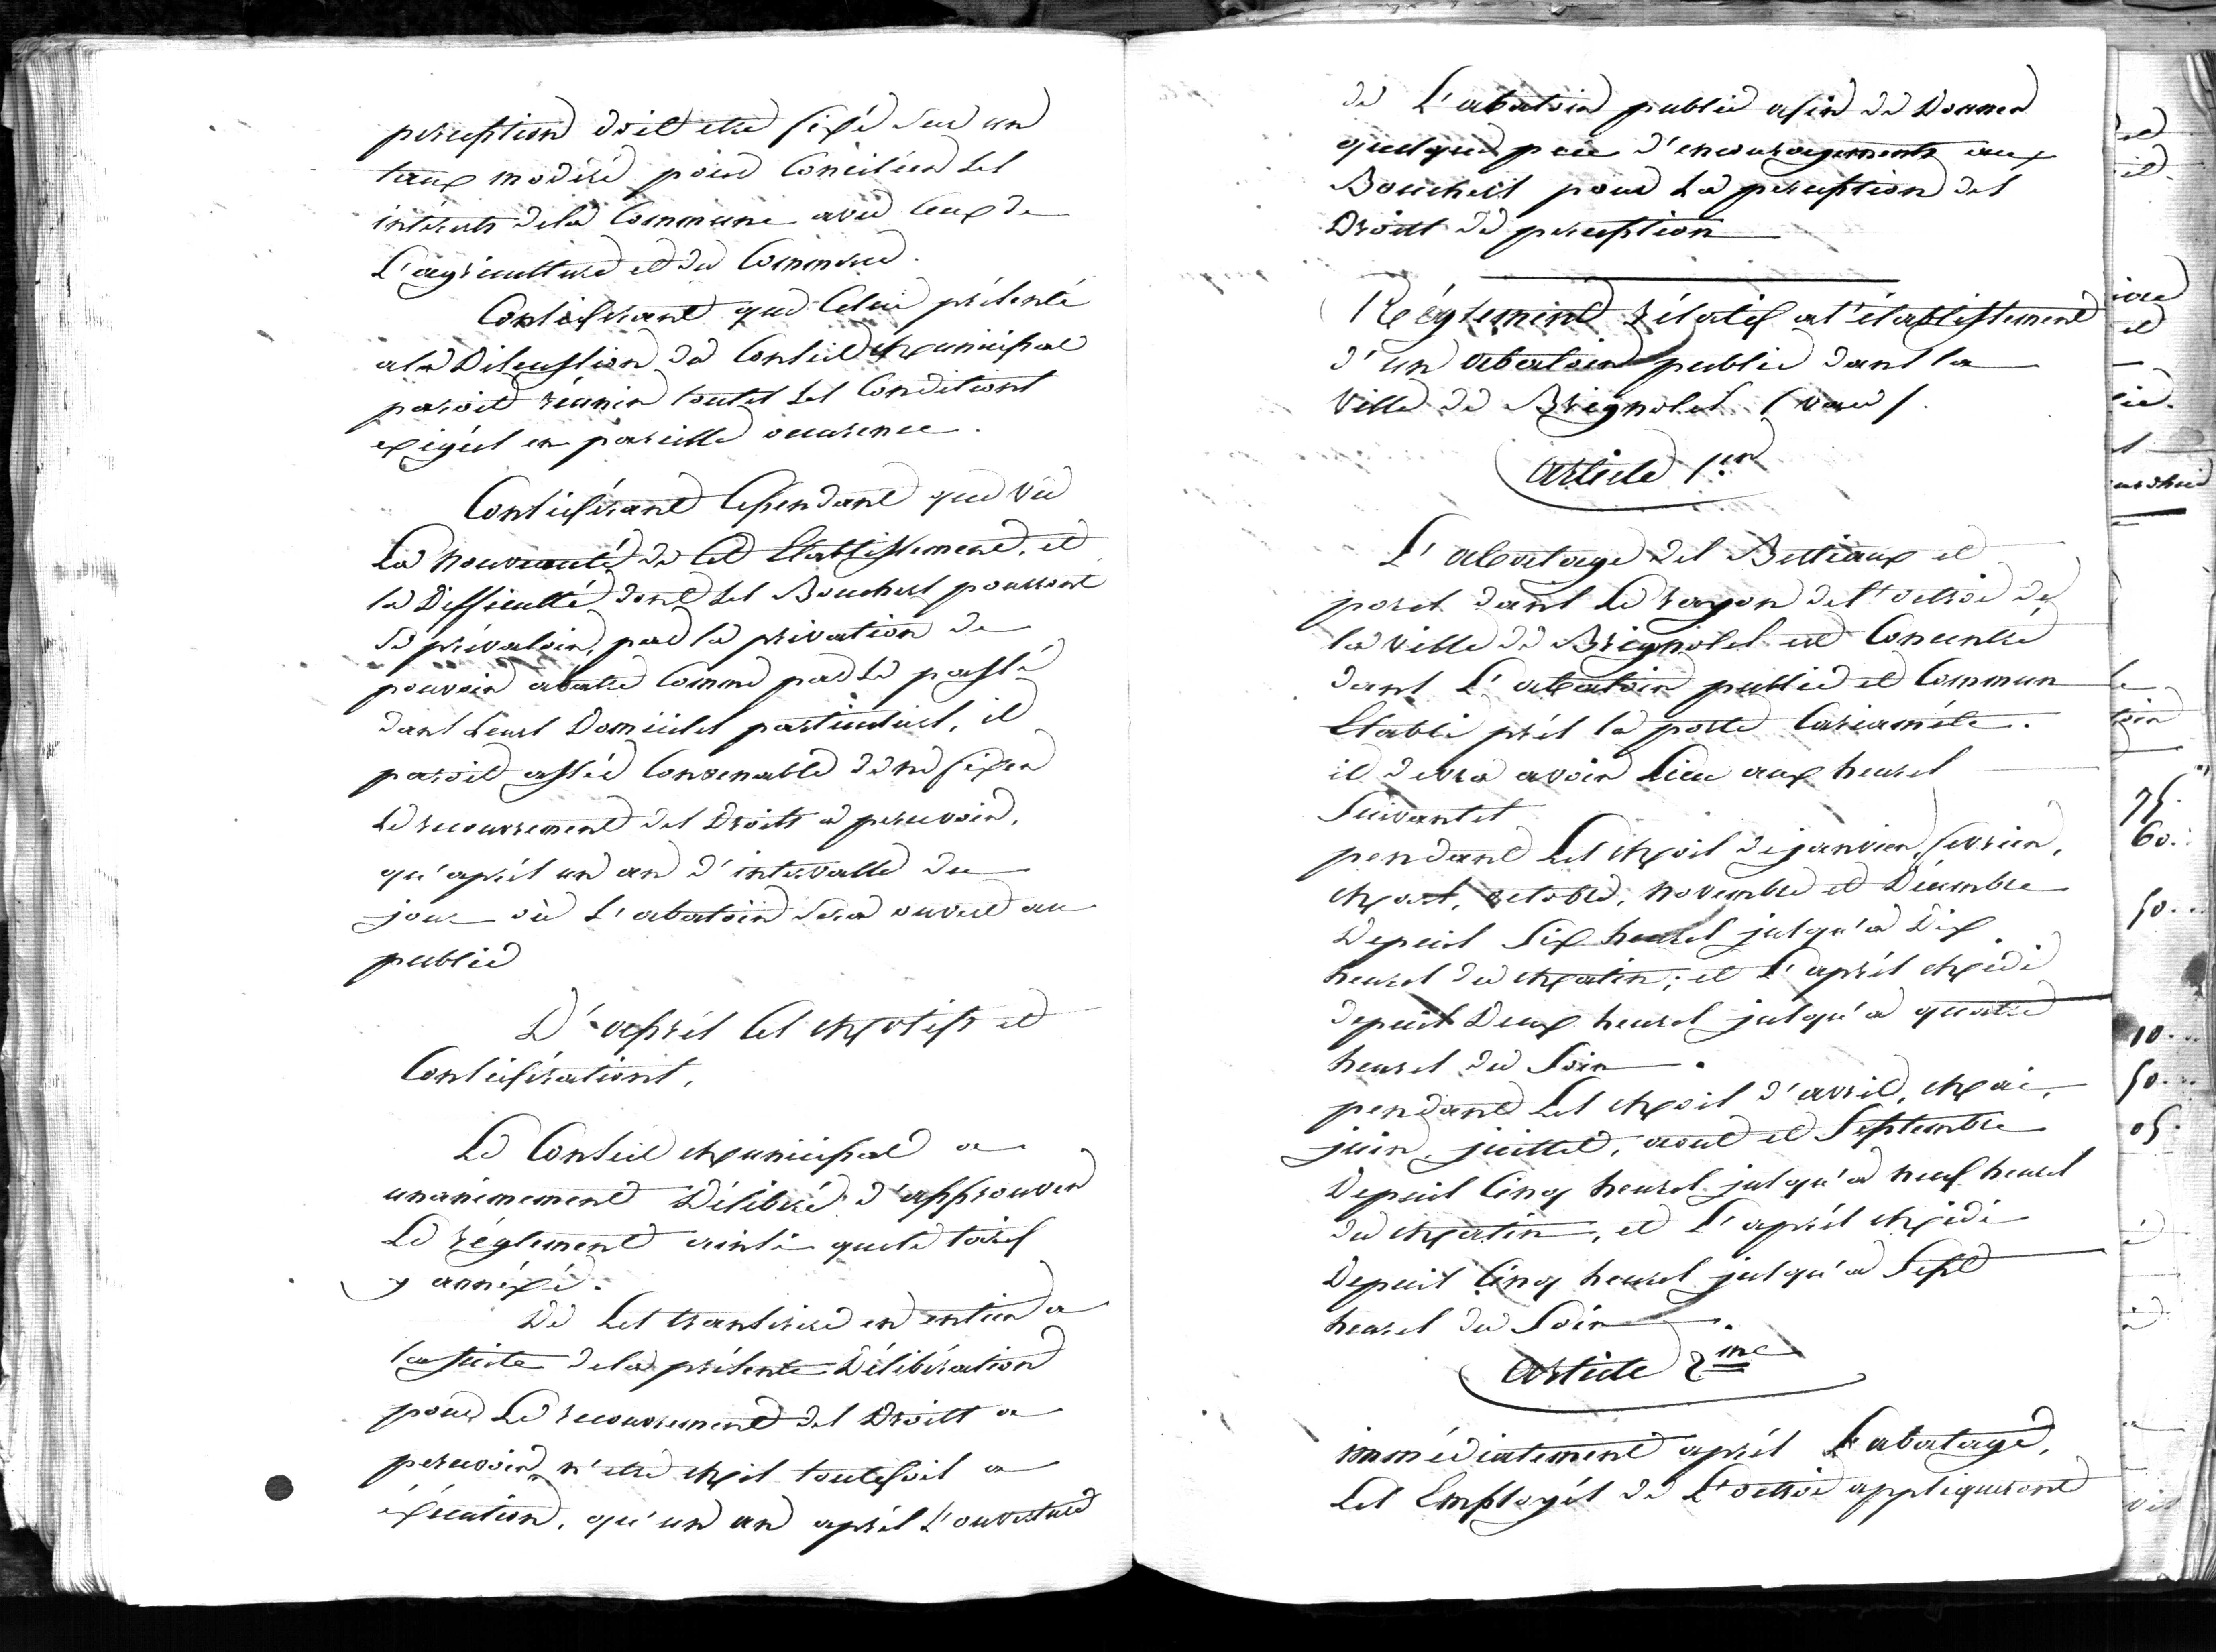 perception doit etre fixé sur un
taux modéré pour Concilier les
intérests dela Commune avec Ceux de
L'agriculture et du Commerce.
Considérant que Celui présenté
ala Discussion du Conseil Municipal
paroit réunir toutes les Conditions
exigées en pareille occurence.
Considérant Cependant que vu
La nouveauté de Cet Etablissement, et
la Difficulté dont les Bouchers pourront
se prévaloir, par la privation de
pouvoir abattre Comme par le passé
dans leurs Domiciles particuliers, il
paroit assés Convenable de ne fixer
le recouvrement des Droits a percevoir,
qu'aprés un an d'intervalle du
jour où L'abatoir sera ouvert au
public
D'aprés Ces Motifs et
Considérations,
Le Conseil Municipal a
unanimement Délibéré d'approuver
Le réglement ainsi que le tarif
y annéxé.
De Les transcrire en entier a
la suite dela présente Délibération
pour Le recouvrement des Droits a
percevoir n'etre Mis toutefois a
éxécution, qu'un an aprés L'ouverture
de L'abatoir public afin de Donner
quelque peu d'encouragements aux
Bouchers pour La perception des
Droits de perception
Réglement rélatif a l'établissement
d'un abatoir public dans la
ville de Brignoles (var).
Article 1.er
L'abatage des Bestiaux et
porcs dans Le rayon de l'octroi de
la ville de Brignoles est Concentré
dans L'abatoir public et Commun
Etabli prés la porte Cariaméte.
il devra avoir Lieu aux heures
Suivantes
pendant Les Mois de janvier, fevrier,
Mars, octobre, novembre et Décembre
Depuis Six heures jusqu'a Dix
heures du Matin; et L'aprés Midi
depuis Deux heures jusqu'a quatre
heures du Soir.
pendant Les Mois d'avril, Mai,
juin, juillet, aout et Septembre
Depuis Cinq heures jusqu'a neuf heures
du Matin, et L'aprés Midi
Depuis Cinq heures jusqu'a Sept
heures du Soir.
Article 2.me
immédiatement aprés L'abatage,
Les Employés de L'octroi appliqueront
75.
60.
50...
10...
50...
05.